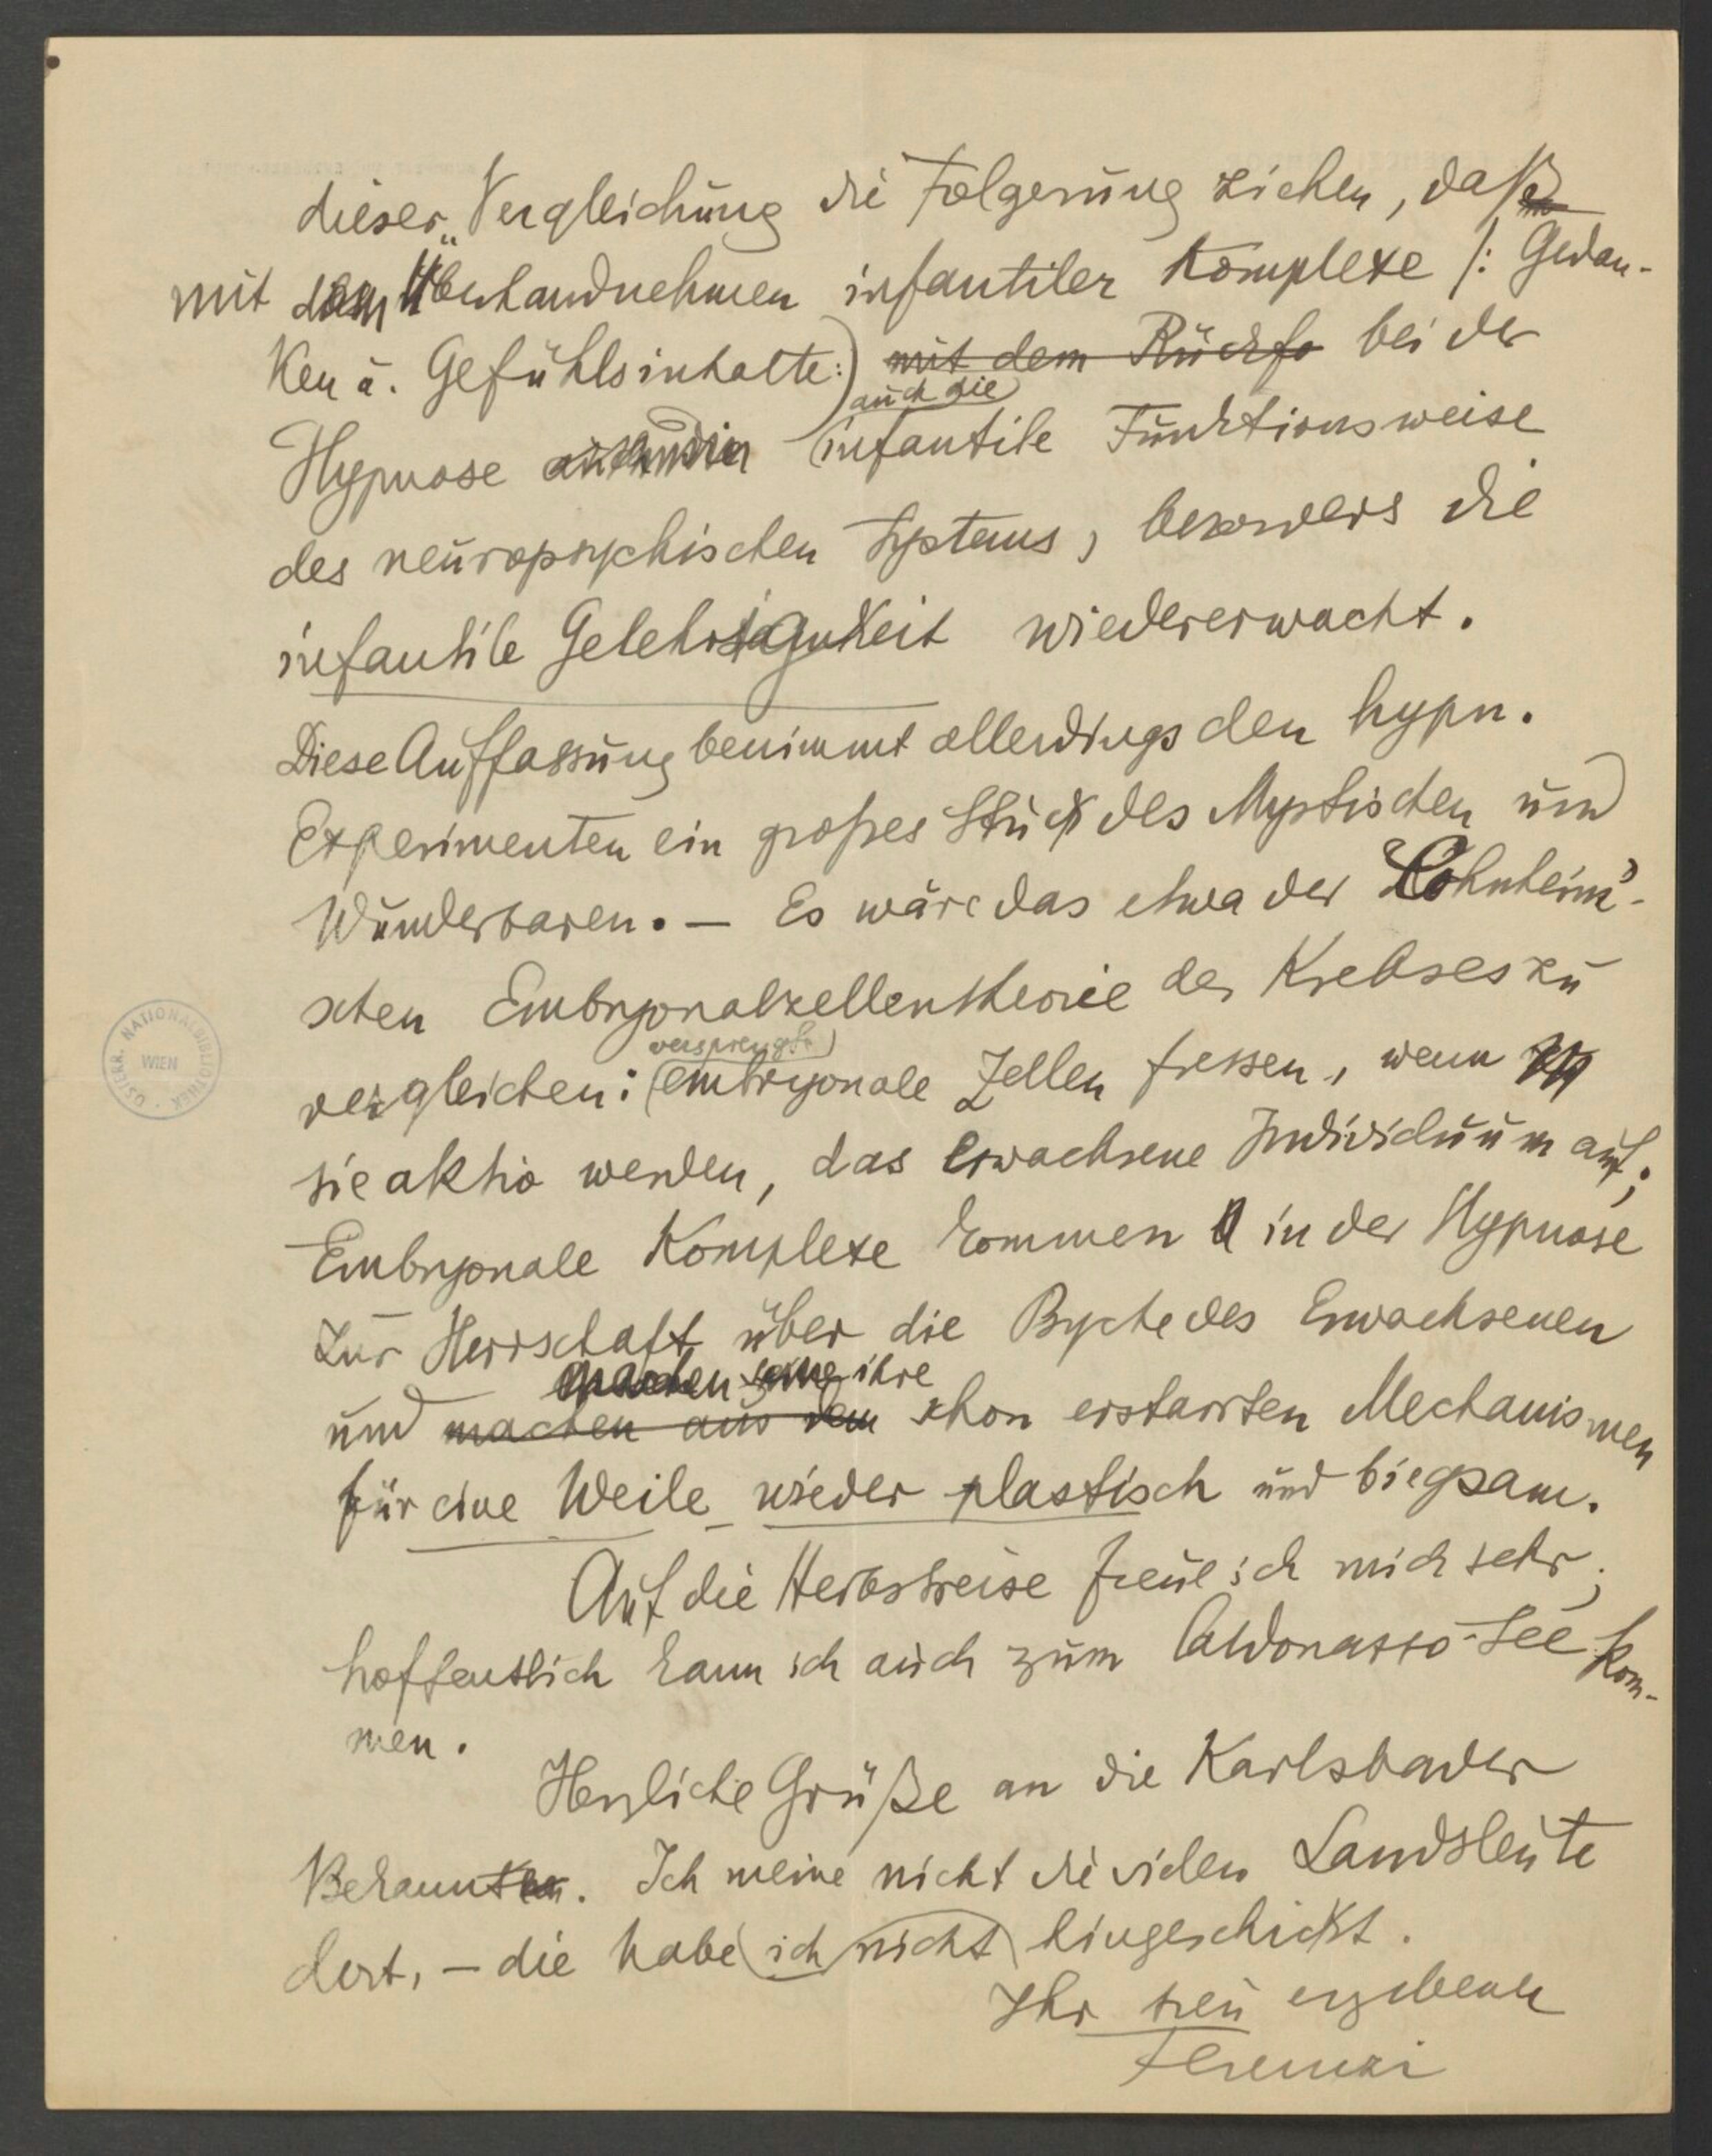 dieser Vergleichung die Folgerung ziehen, daß
mit dem Überhandnehmen infantiler Komplexe /: Gedan-
ken u. Gefühlsinhalte :) mit dem Rückfa bei der
auch die
Hypnose infantile Funktionsweise
des neuropsychischen Systems, besonders die
infantile Gelehrigkeit wiedererwacht.
Diese Auffassung benimmt allerdings den hypn.
Experimenten ein großes Stück des Mystischen und
Wunderbaren. — Es wäre das etwa der Cohnheim'-
schen Embryonalzellentheorie des Krebses zu
versprengte
vergleichen: embryonale Zellen fressen, wenn
sie aktiv werden, das erwachsene Individuum auf;
Embryonale Komplexe kommen in der Hypnose
zur Herrschaft über die Psyche des Erwachsenen
machen ihre
und machen aus dem schon erstarrten Mechanismen
für eine Weile wieder plastisch und biegsam.
Auf die Herbstreise freue ich mich sehr;
hoffentlich kann ich auch zum Caldonazzo-See kom-
men.
Herzliche Grüße an die Karlsbader
Bekannten. Ich meine nicht die vielen Landsleute
dort, — die habe ich nicht hingeschickt.
Ihr treu ergebener
Ferenczi
ÖSTERR. NATIONALBIBLIOTHEK
WIEN